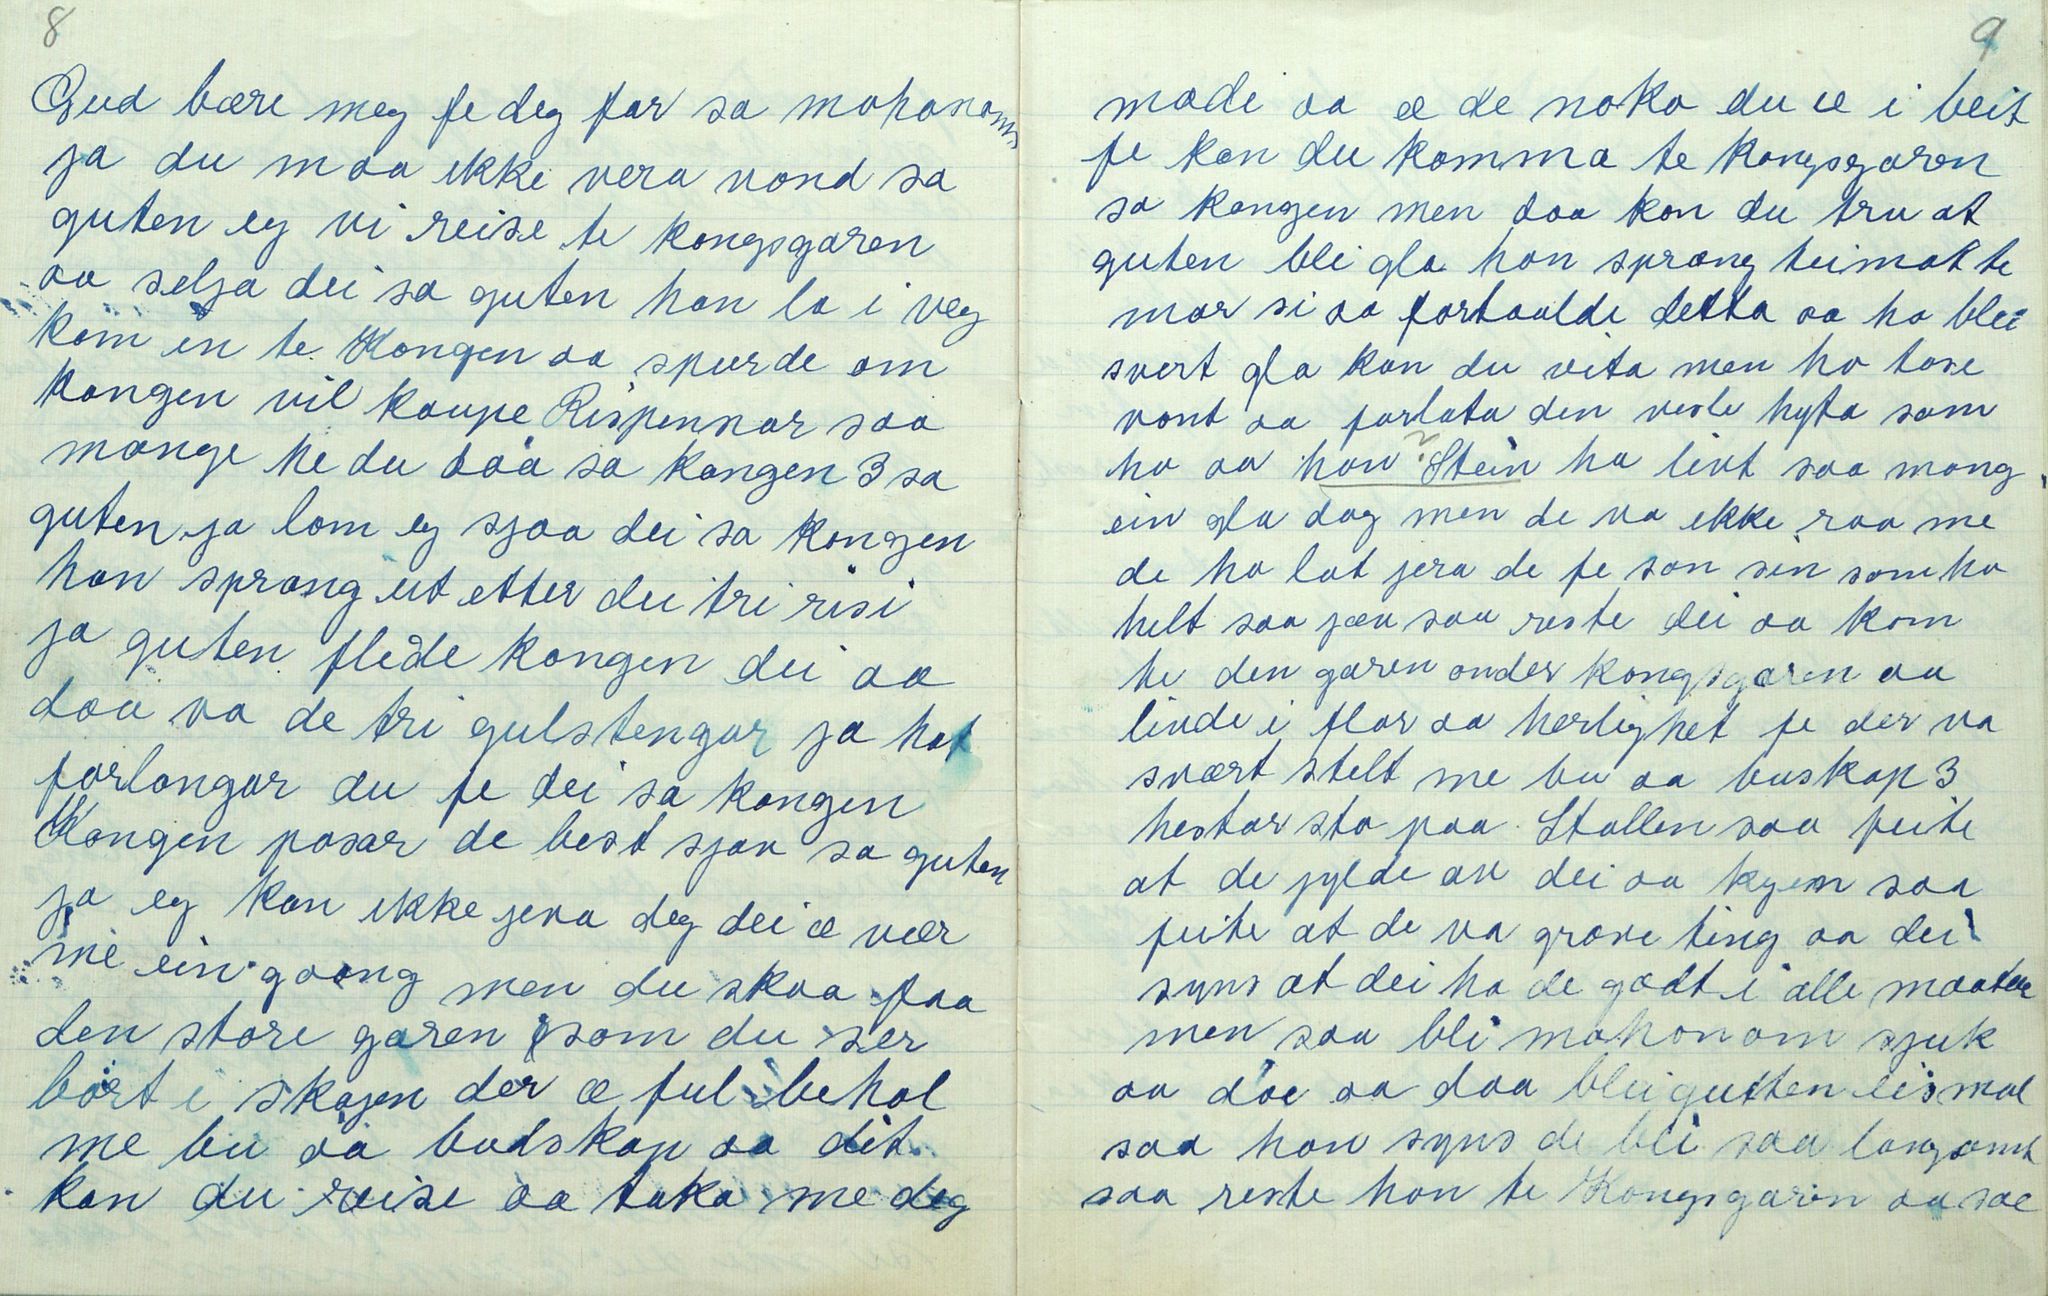 8
Gud bære meg fe deg far sa mohonom
ja du maa ikke vera vond sa
guten eg vi reise te kongsgaren
aa selja dei sa guten han la i veg
kom in te Kongen aa spurde om
kongen vil kaupe Rispennar saa
mange he du daa sa kongen 3 sa
guten ja lom eg sjaa dei sa kongen
han sprang ut etter dei tri risi
ja guten flidde kongen dei aa
daa va de tri gulstengar ja hot
forlangar du fe dei sa kongen
Kongen pasar de best sjøv sa guten
ja eg kan ikke jeva deg dei æ vær
me ein gaang men du skaa faa
den store garen som du ser
bort i skogen der æ ful behol
me bu aa budskap aa dit
kan du reise aa taka me deg
9
modi aa æ de noko du æ i beit
fe kan du komma te kongsgaren
sa kongen men daa kan du tru at
guten bli gla han sprang heimat te
mor si aa fortaalde detta aa ho blei
svert gla kan du vita men ho tose
vont aa forlata den vesle hyta som
ho aa han ? Stein ha livt saa mang
ein gla dag men de va ikke raa me
de ho lat jera de fe son sin som ho
helt saa jæv saa reste dei aa kom
te den garen onder kongsgaren aa
livde i flor aa herlighet fe der va
svært stelt me bu aa buskap 3
hestar sto paa Stallen saa feite
at de jylde av dei aa kyem saa
feite at de va grove ting aa dei
syns at dei ha de godt i alle maatar
men saa bli mohonom sjuk
aa døe aa daa blei guten eismal
saa han syns de bli saa langsomt
saa reste han te Kongsgaren aa sae